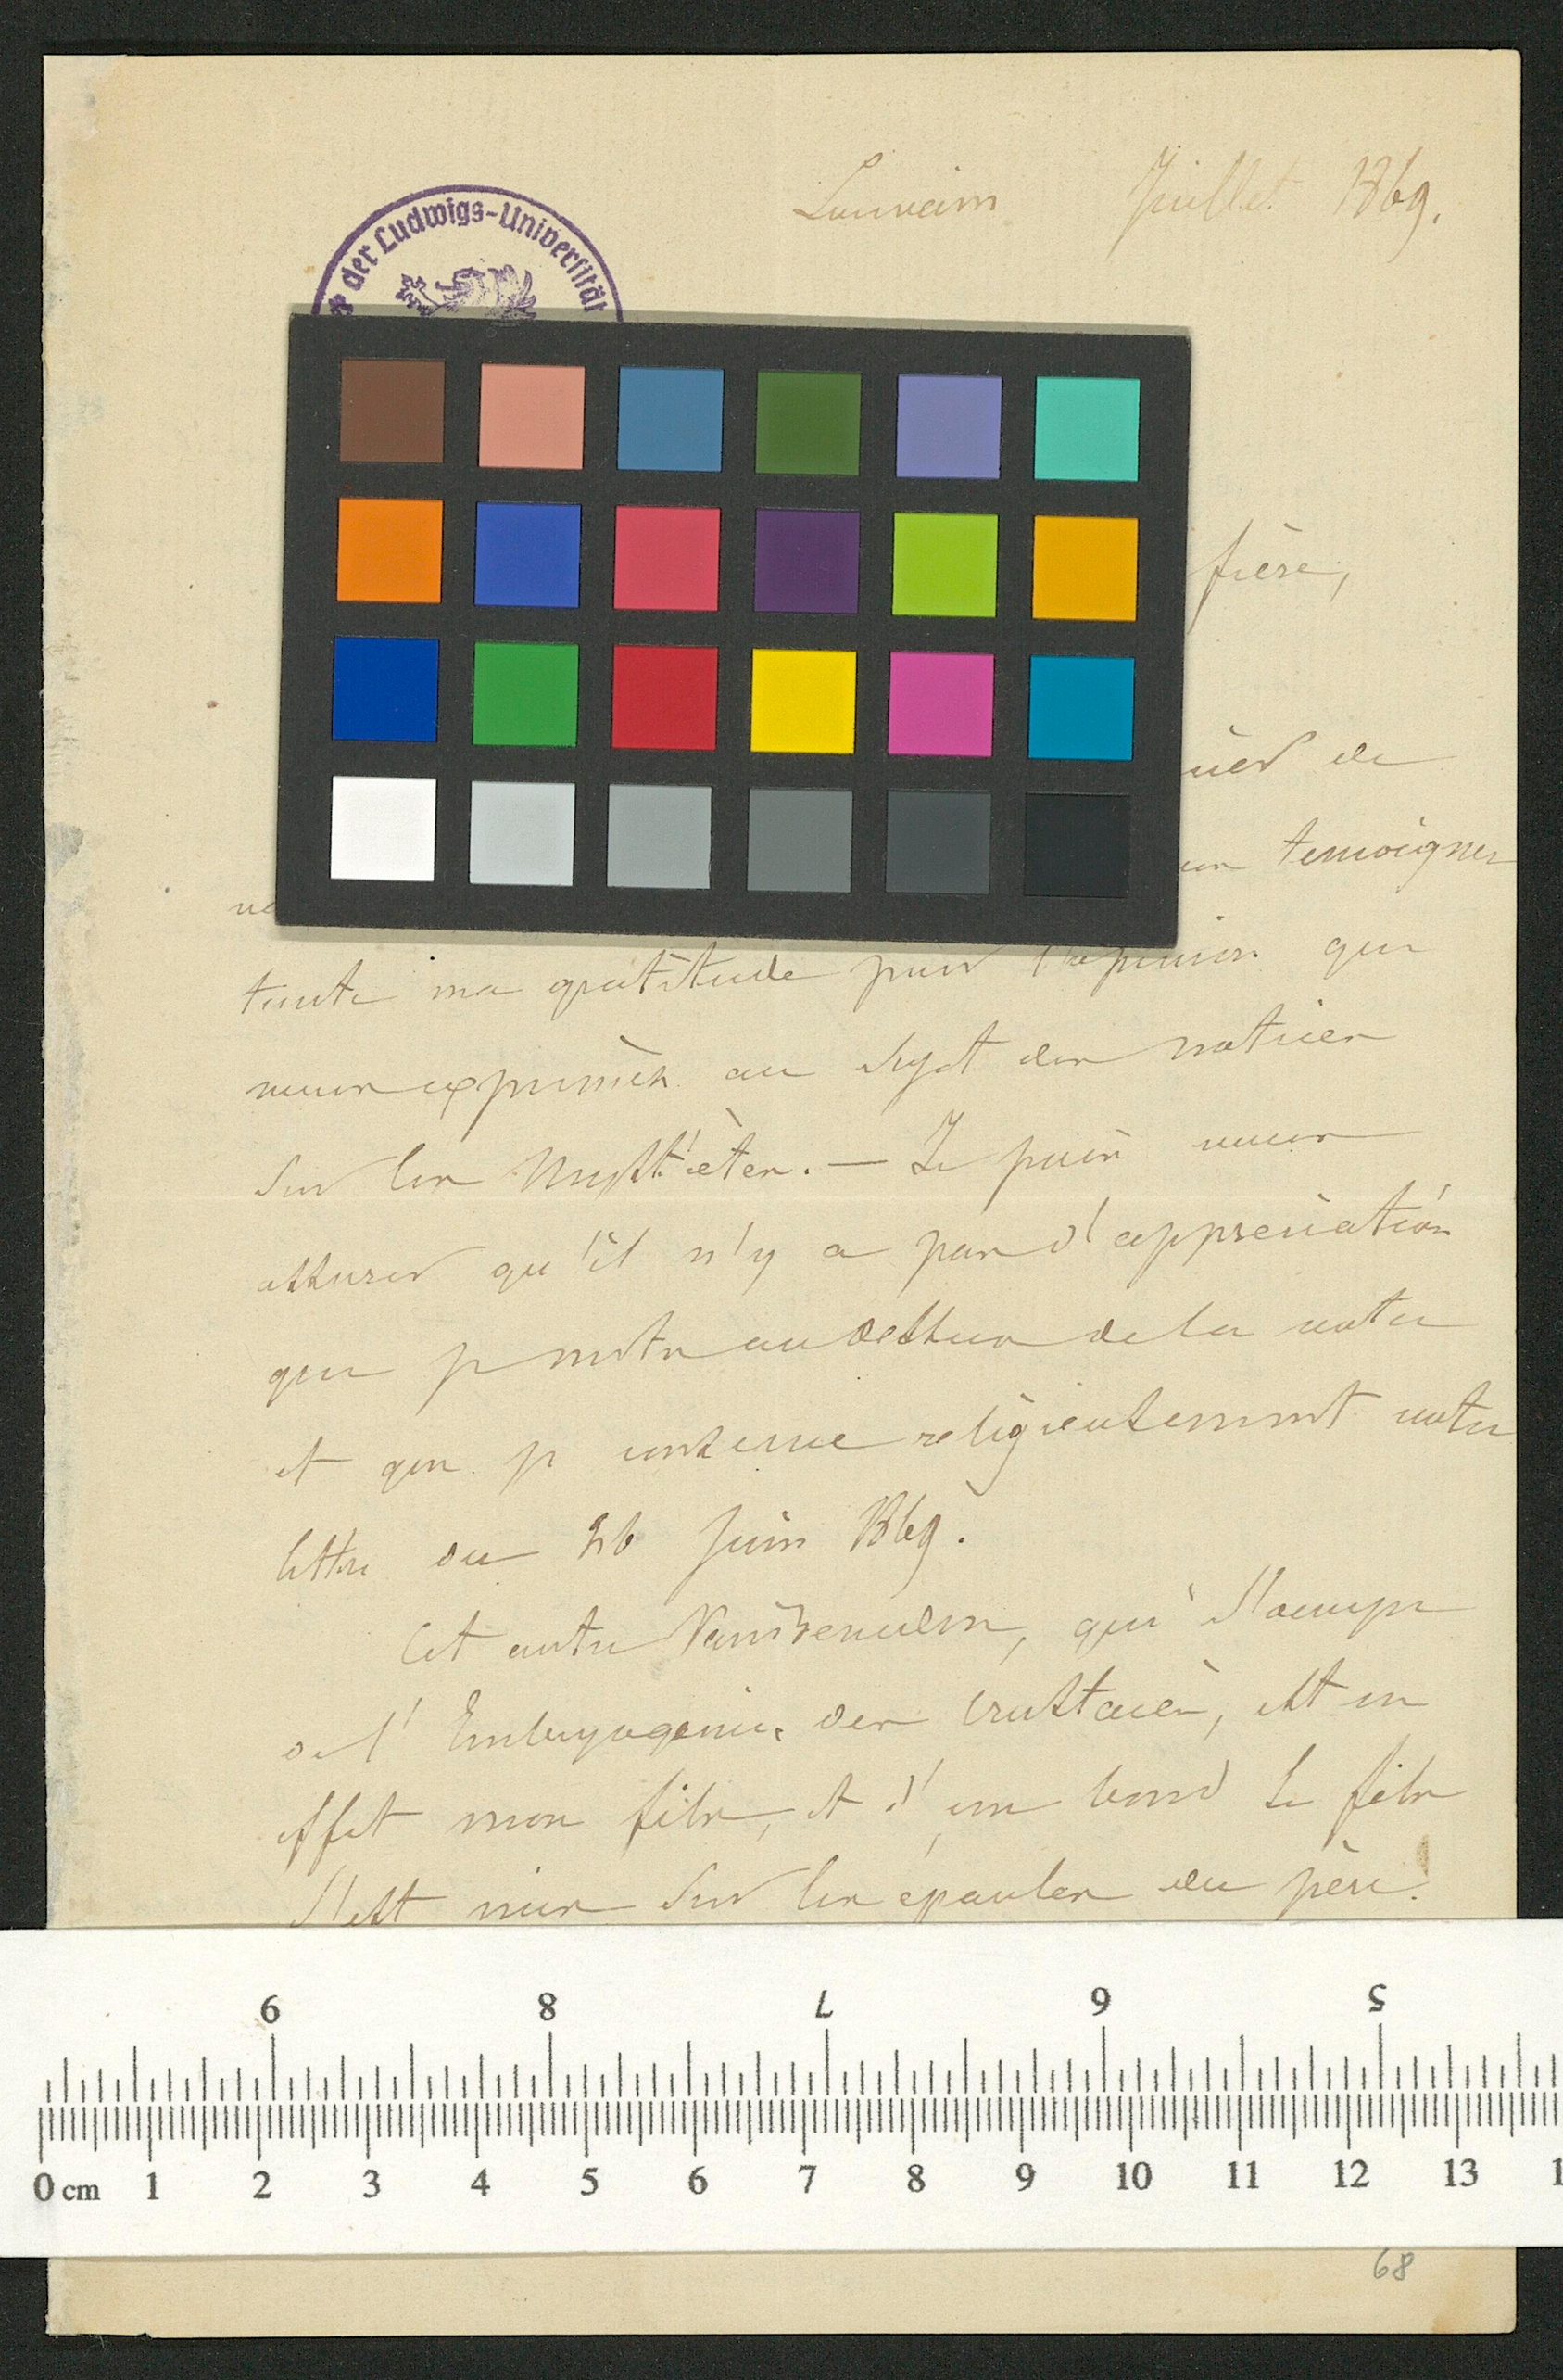 Louvain Juillet 1869.
der Ludwigs-Universität
frère,
de
temoigner
toute ma gratitude pour l'opinion que
vous exprimèz au sujet des notices
sur les Mystîcètes. — Je puis vous
assurer qu'il n'y a pas d'appreciation
que je mets au dessus de la votre
et que je conserve religieusement votre
lettre du 26 Juin 1869.
Cet autre Van Beneden, qui s'occupe
de l'Embryogenie des Crustacés, est en
effet mon fils, et d'un bond le fils
s'est mis sur les épaules du père.
9 8 7 6 5
0 cm 1 2 3 4 5 6 7 8 9 10 11 12 13 1
68